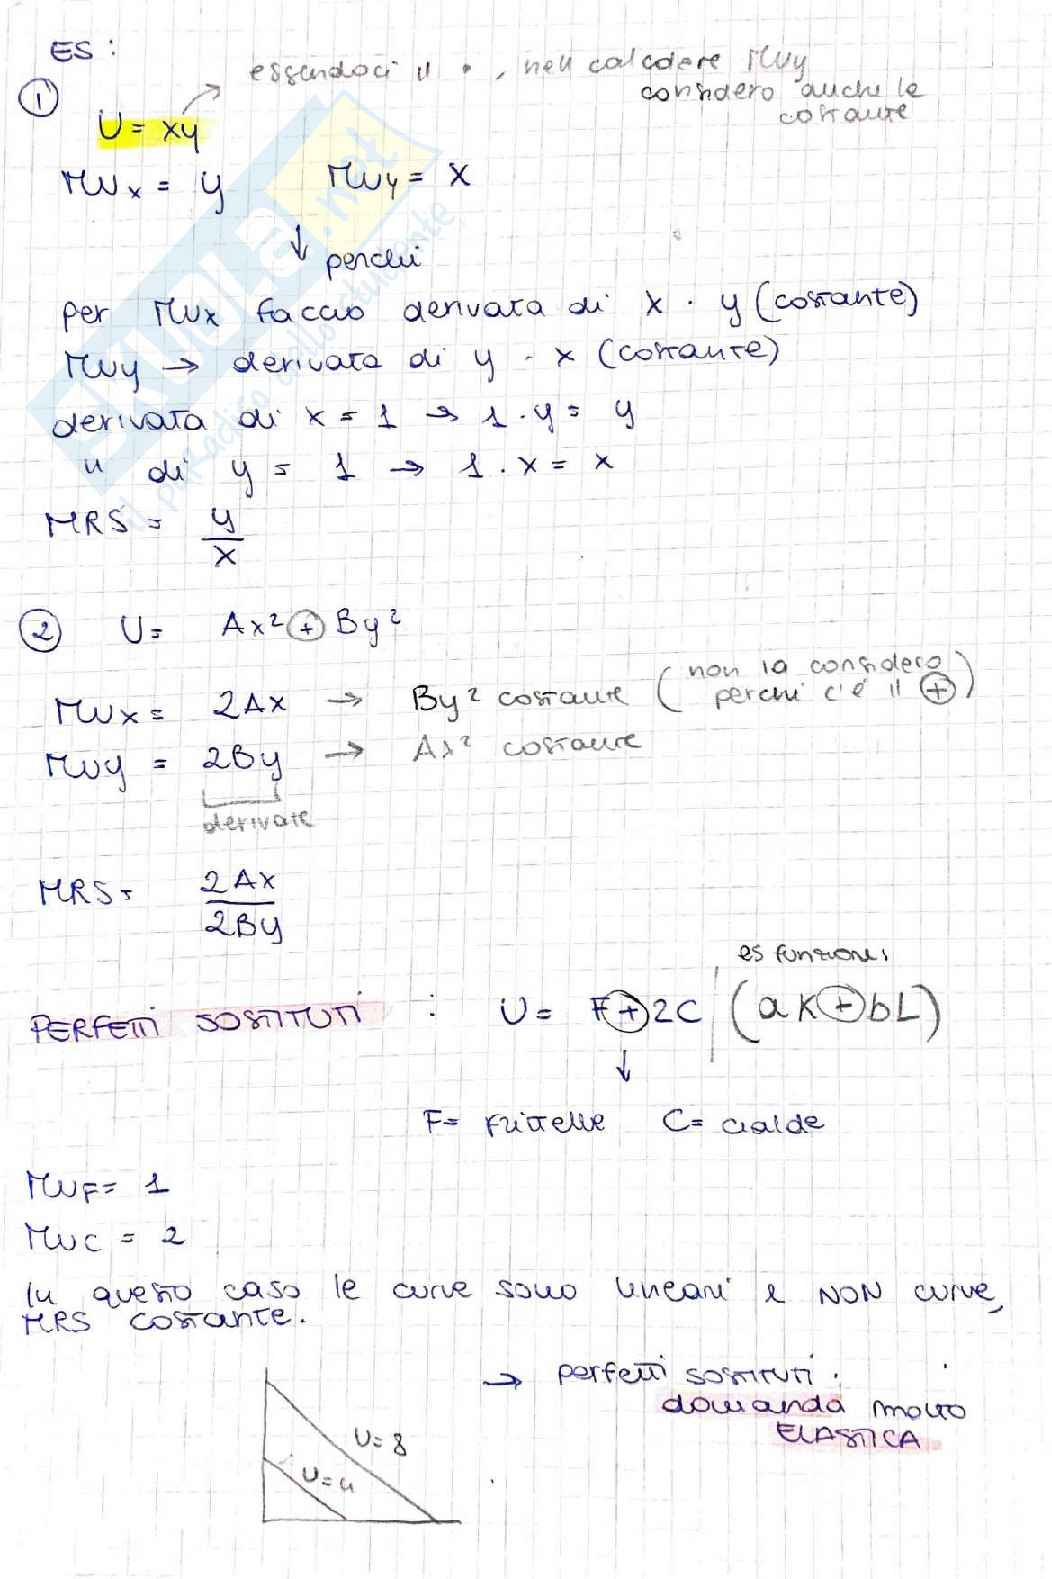 ES:
essendoci il • , nell calcolare MUy
considero anche la
costante
①
U = xy
MUx = y MUy = x
↓ perchè
per MUx faccio derivata di x · y (costante)
MUy → derivata di y · x (costante)
derivata di x = 1 → 1 · y = y
" di y = 1 → 1 · x = x
MRS = y/x
② U = Ax² + By²
MUx = 2Ax → By² costante (non la considero
perchè c'è il +)
MUy = 2By → Ax² costante
derivate
MRS = 2Ax/2By
es funzioni
PERFETTI SOSTITUTI : U = F + 2C (aK + bL)
↓
F = frittelle C = cialde
MUF = 1
MUC = 2
In questo caso le curve sono lineari e NON curve,
MRS costante.
→ perfetti sostituti:
domanda molto
ELASTICA
U=8
U=4
SKUOLA.net
il paradiso dello studente